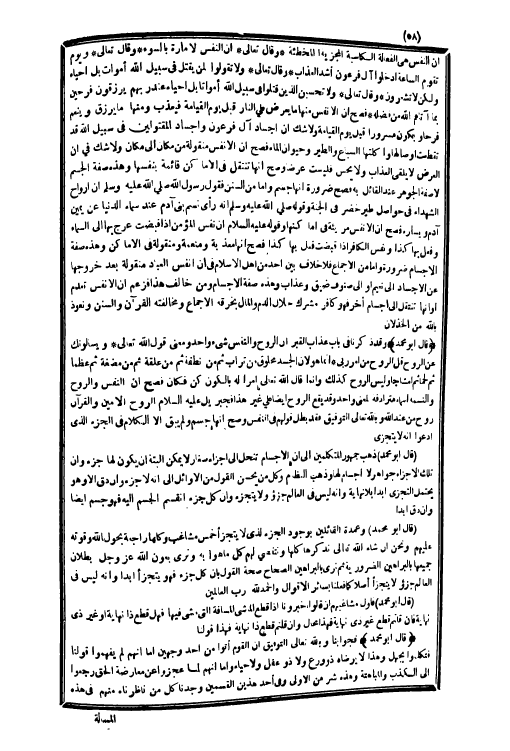 (٥٨)
ان النفس هي الفعالة الكاسبة المجزية المخطئة * وقال تعالى * ان النفس لأمارة بالسوء * وقال تعالى * ويوم
تقوم الساعة ادخلوا آل فرعون أشد العذاب * وقال تعالى * ولا تقولوا لمن يقتل في سبيل الله أموات بل أحياء
ولكن لا تشعرون * وقال تعالى * ولا تحسبن الذين قتلوا في سبيل الله أمواتا بل أحياء عند ربهم يرزقون فرحين
بما آتاهم الله من فضله * فصح ان الانفس منها ما يعرض على النار قبل يوم القيامة فيعذب ومنها ما يرزق وينعم
فرحا ويكون مسرورا قبل يوم القيامة ولا شك ان اجساد آل فرعون واجساد المقتولين في سبيل الله قد
تقطعت اوصالها واكلتها السباع والطير وحيوان الماء فصح ان الانفس منقولة من مكان الى مكان ولا شك في ان
العرض لا يلقى العذاب ولا يحس فليست عرضا وصح انها تنتقل في الاماكن قائمة بنفسها وهذه صفة الجسم
لا صفة الجوهر عند القائل به فصح ضرورة انها جسم واما من السنن فقول رسول الله صلى الله عليه وسلم ان ارواح
الشهداء في حواصل طير خضر في الجنة وقوله صلى الله عليه وسلم انه رأى نسم بنى آدم عند سماء الدنيا عن يمين
آدم ويساره فصح ان الانفس مرئية في اماكنها وقوله عليه السلام ان نفس المؤمن اذا قبضت عرج بها الى السماء
وفعل بها كذا ونفس الكافر اذا قبضت فعل بها كذا فصح انها معذبة ومنعمة ومنقولة في الاماكن وهذه صفة
الاجسام ضرورة واما من الاجماع فلا خلاف بين احد من اهل الاسلام في ان انفس العباد منقولة بعد خروجها
عن الاجساد الى نعيم او الى صنوف ضيق وعذاب وهذه صفة الاجسام ومن خالف هذا فزعم ان الانفس تعدم
اوانها تنتقل الى اجسام أخر فهو كافر مشرك حلال الدم والمال بخرقه الاجماع ومخالفته القرآن والسنن ونعوذ
بالله من الخذلان
﴿قال ابو محمد﴾ وقد ذكرنا في باب عذاب القبر ان الروح والنفس شيء واحد ومعنى قول الله تعالى * ويسألونك
عن الروح قل الروح من امر ربي * انما هو لان الجسد مخلوق من تراب ثم من نطفة ثم من علقة ثم من مضغة ثم عظما
ثم لحما ثم امشاجا وليس الروح كذلك وانما قال الله تعالى امرا له بالكون كن فكان فصح ان النفس والروح
والنسمة اسماء مترادفة لمعنى واحد وقد يقع الروح ايضا على غير هذا فجبريل عليه السلام الروح الامين والقرآن
روح من عند الله وبالله تعالى التوفيق فقد بطل قولهم في النفس وصح انها جسم ولم يبق الا الكلام في الجزء الذي
ادعوا انه لا يتجزى
(قال ابو محمد) ذهب جمهور المتكلمين الى ان الاجسام تنحل الى اجزاء صغار لا يمكن البتة ان يكون لها جزء وان
تلك الاجزاء جواهر لا اجسام لها وذهب النظام وكل من يحسن القول من الاوائل الى انه لا جزء وان دق الا وهو
يحتمل التجزى ابدا بلا نهاية وانه ليس في العالم جزء لا يتجزء وان كل جزء انقسم الجسم اليه فهو جسم ايضا
وان دق ابدا
(قال ابو محمد) وعمدة القائلين بوجود الجزء الذي لا يتجزأ خمس مشاغب وكلها راجعة بحول الله وقوته
عليهم ونحن ان شاء الله تعالى نذكرها كلها ونتقصى لهم كل ما موهوا به ونرى بعون الله عز وجل بطلان
جميعها بالبراهين الضرورية ثم نرى بالبراهين الصحاح صحة القول بان كل جزء فهو يتجزأ ابدا وانه ليس في
العالم جزؤ لا يتجزأ أصلا كما فعلنا بسائر الاقوال والحمد لله رب العالمين
(قال ابو محمد) فاول مشاغبهم ان قالوا اخبرونا اذا قطع الماشي المسافة التي مشى فيها فهل قطع ذا نهاية او غير ذي
نهاية فان قلتم قطع غير ذي نهاية فهذا محال وان قلتم قطع ذا نهاية فهذا قولنا
﴿قال ابو محمد﴾ فجوابنا وبالله تعالى التوفيق ان القوم أتوا من أحد وجهين اما انهم لم يفهموا قولنا
فتكلموا بجهل وهذا لا يرضاه ذو ورع ولا ذو عقل ولا حياء واما انهم لما عجزوا عن معارضة الحق رجعوا
الى الكذب والمباهتة وهذه شر من الاولى وفي أحد هذين القسمين وجدنا كل من ناظرناه منهم في هذه
المسألة